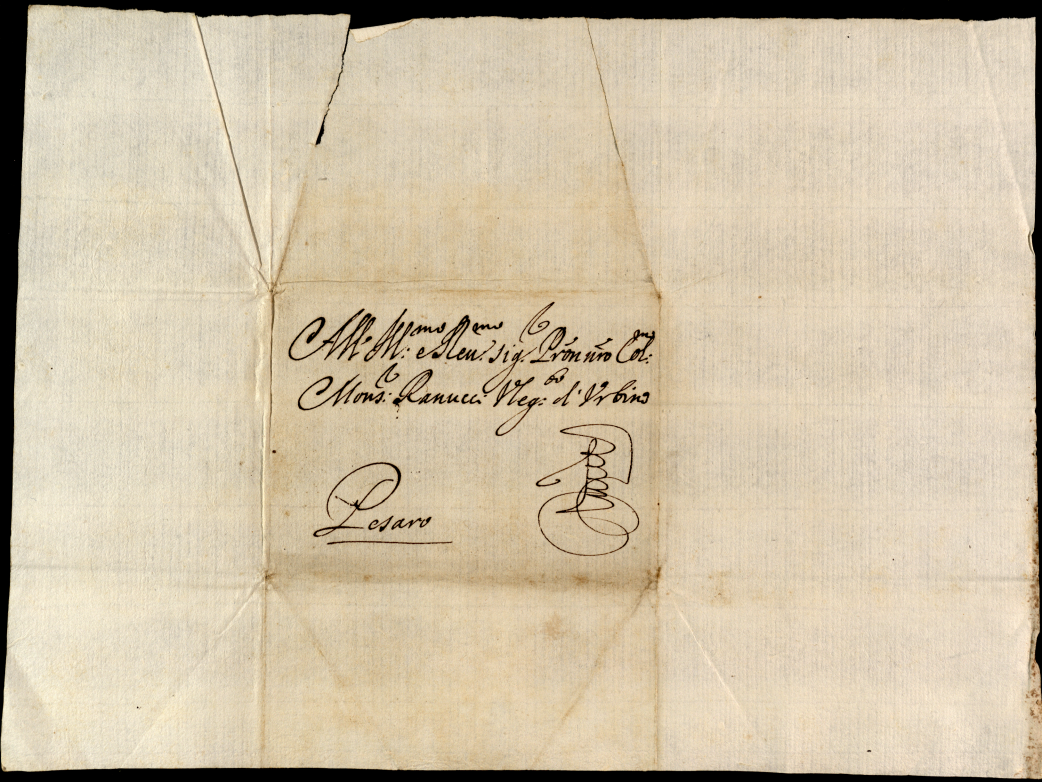 All' Ill:mo e Reu:mo sig.r Prōn n̄ro Col:mo
Mons:r Ranucci Neg:do d' Vrbino
Pesaro